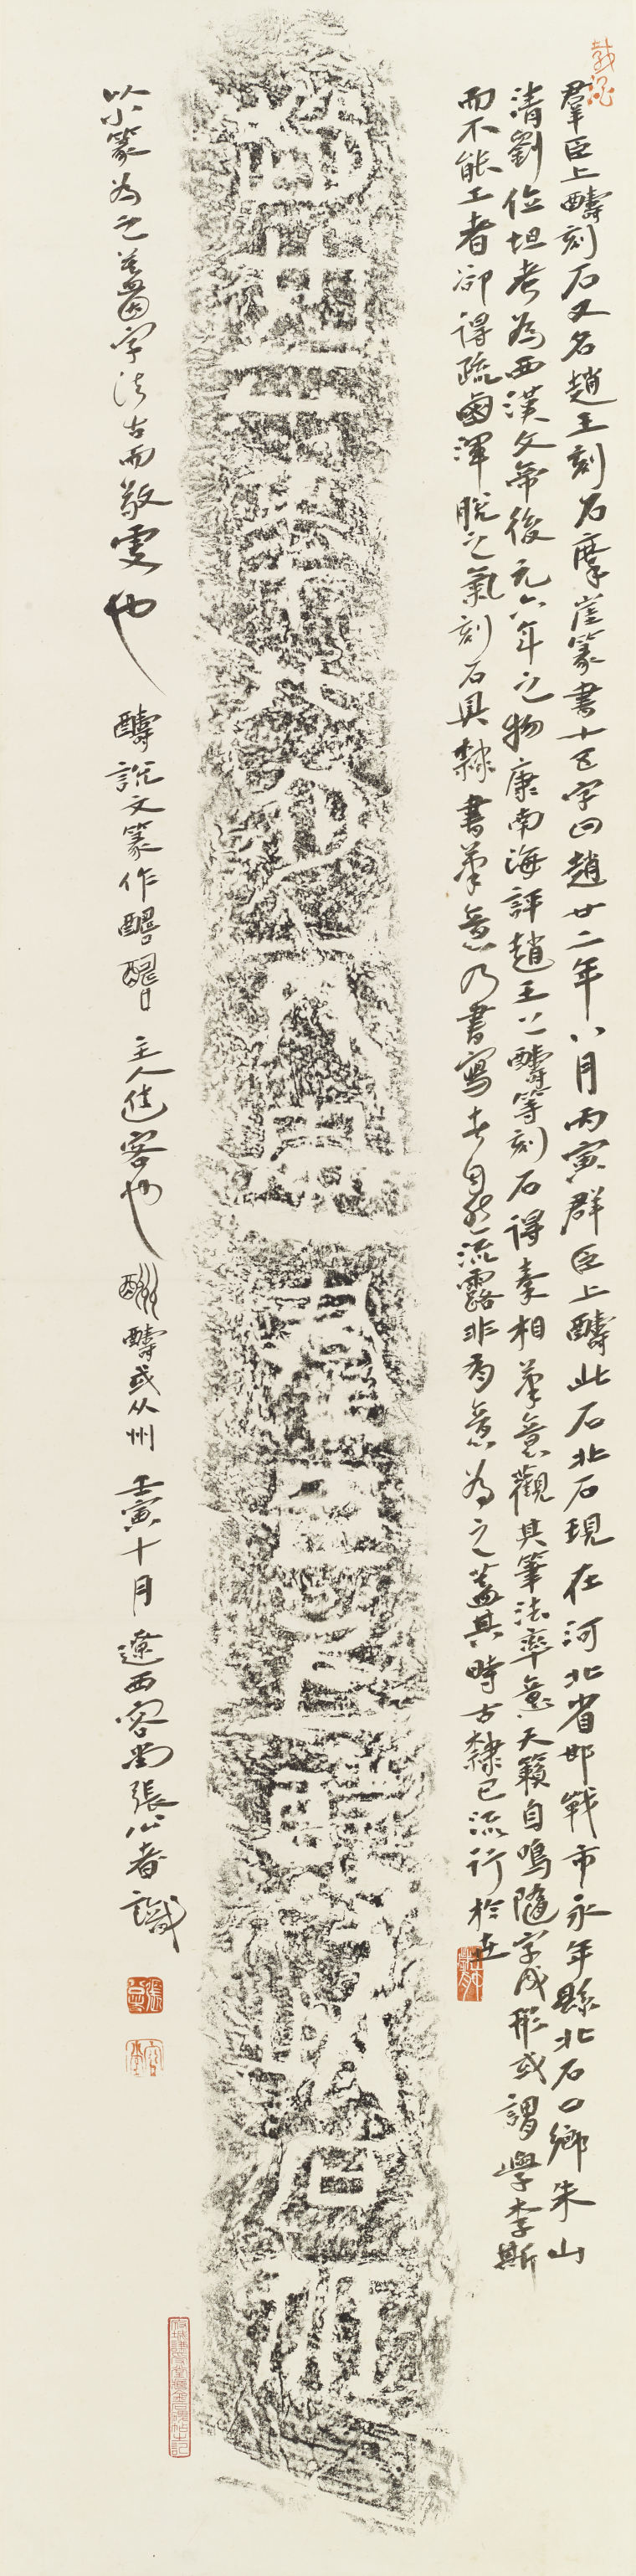 羣臣上醻刻石又名趙王刻石摩崖篆書十五字曰趙廿二年八月丙寅群臣上醻此石北石現在河北省邯鄲市永年縣北石口鄉朱山
清劉位坦考為西漢文帝後元六年之物康南海評趙王上醻等刻石得秦相筆意觀其筆法率意天籟自鳴隨字成形或謂學李斯
而不能工者卻得疏鹵渾脫之氣刻石具隸書筆意乃書寫者自然流露非有意為之蓋其時古隸已流行於世
趙廿二年八月丙寅群臣上醻此石北
以小篆為之蓋因字法古而敬雯也
醻說文篆作醻醻曰主人進客也酬醻或从州
壬寅十月遼西容堂張公者識